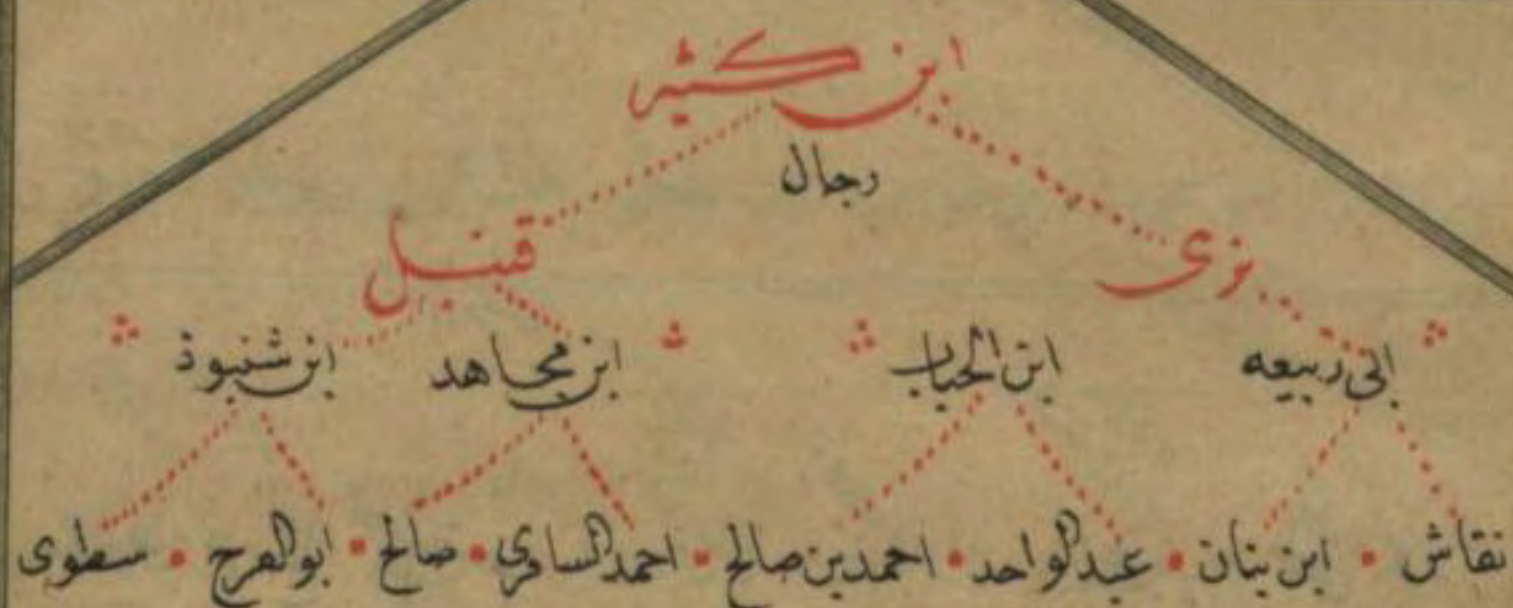 ابن كثير
رجال
بزى قنبل
ابى ربيعه ابن الحباب ابن مجاهد ابن شنبوذ
نقاش • ابن بنان • عبد الواحد • احمد بن صالح • احمد السامرى • صالح • ابو الفرج • سطوى